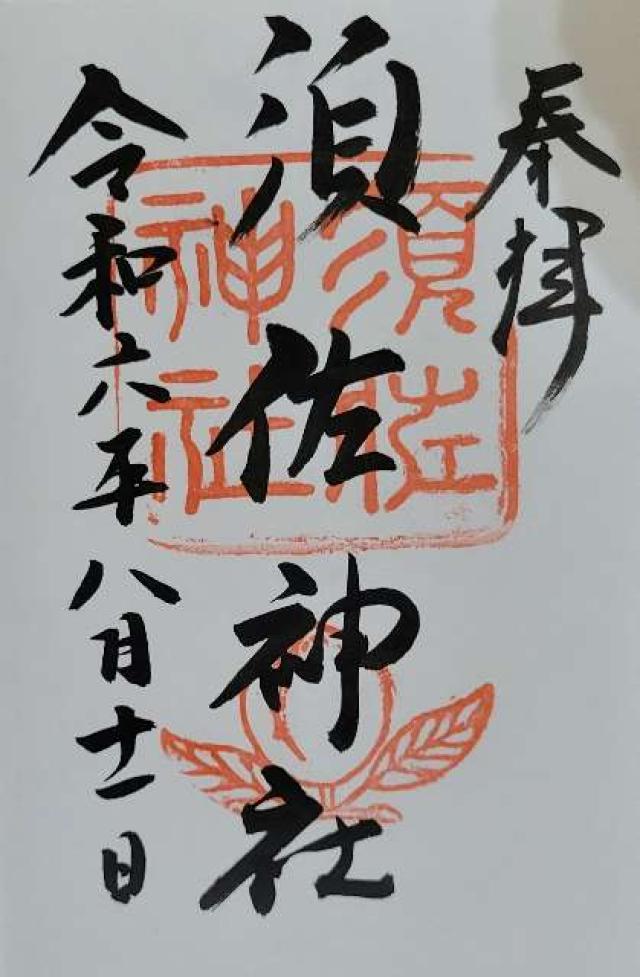 奉拝
須佐神社
令和六年
八月十一日
須佐
神社